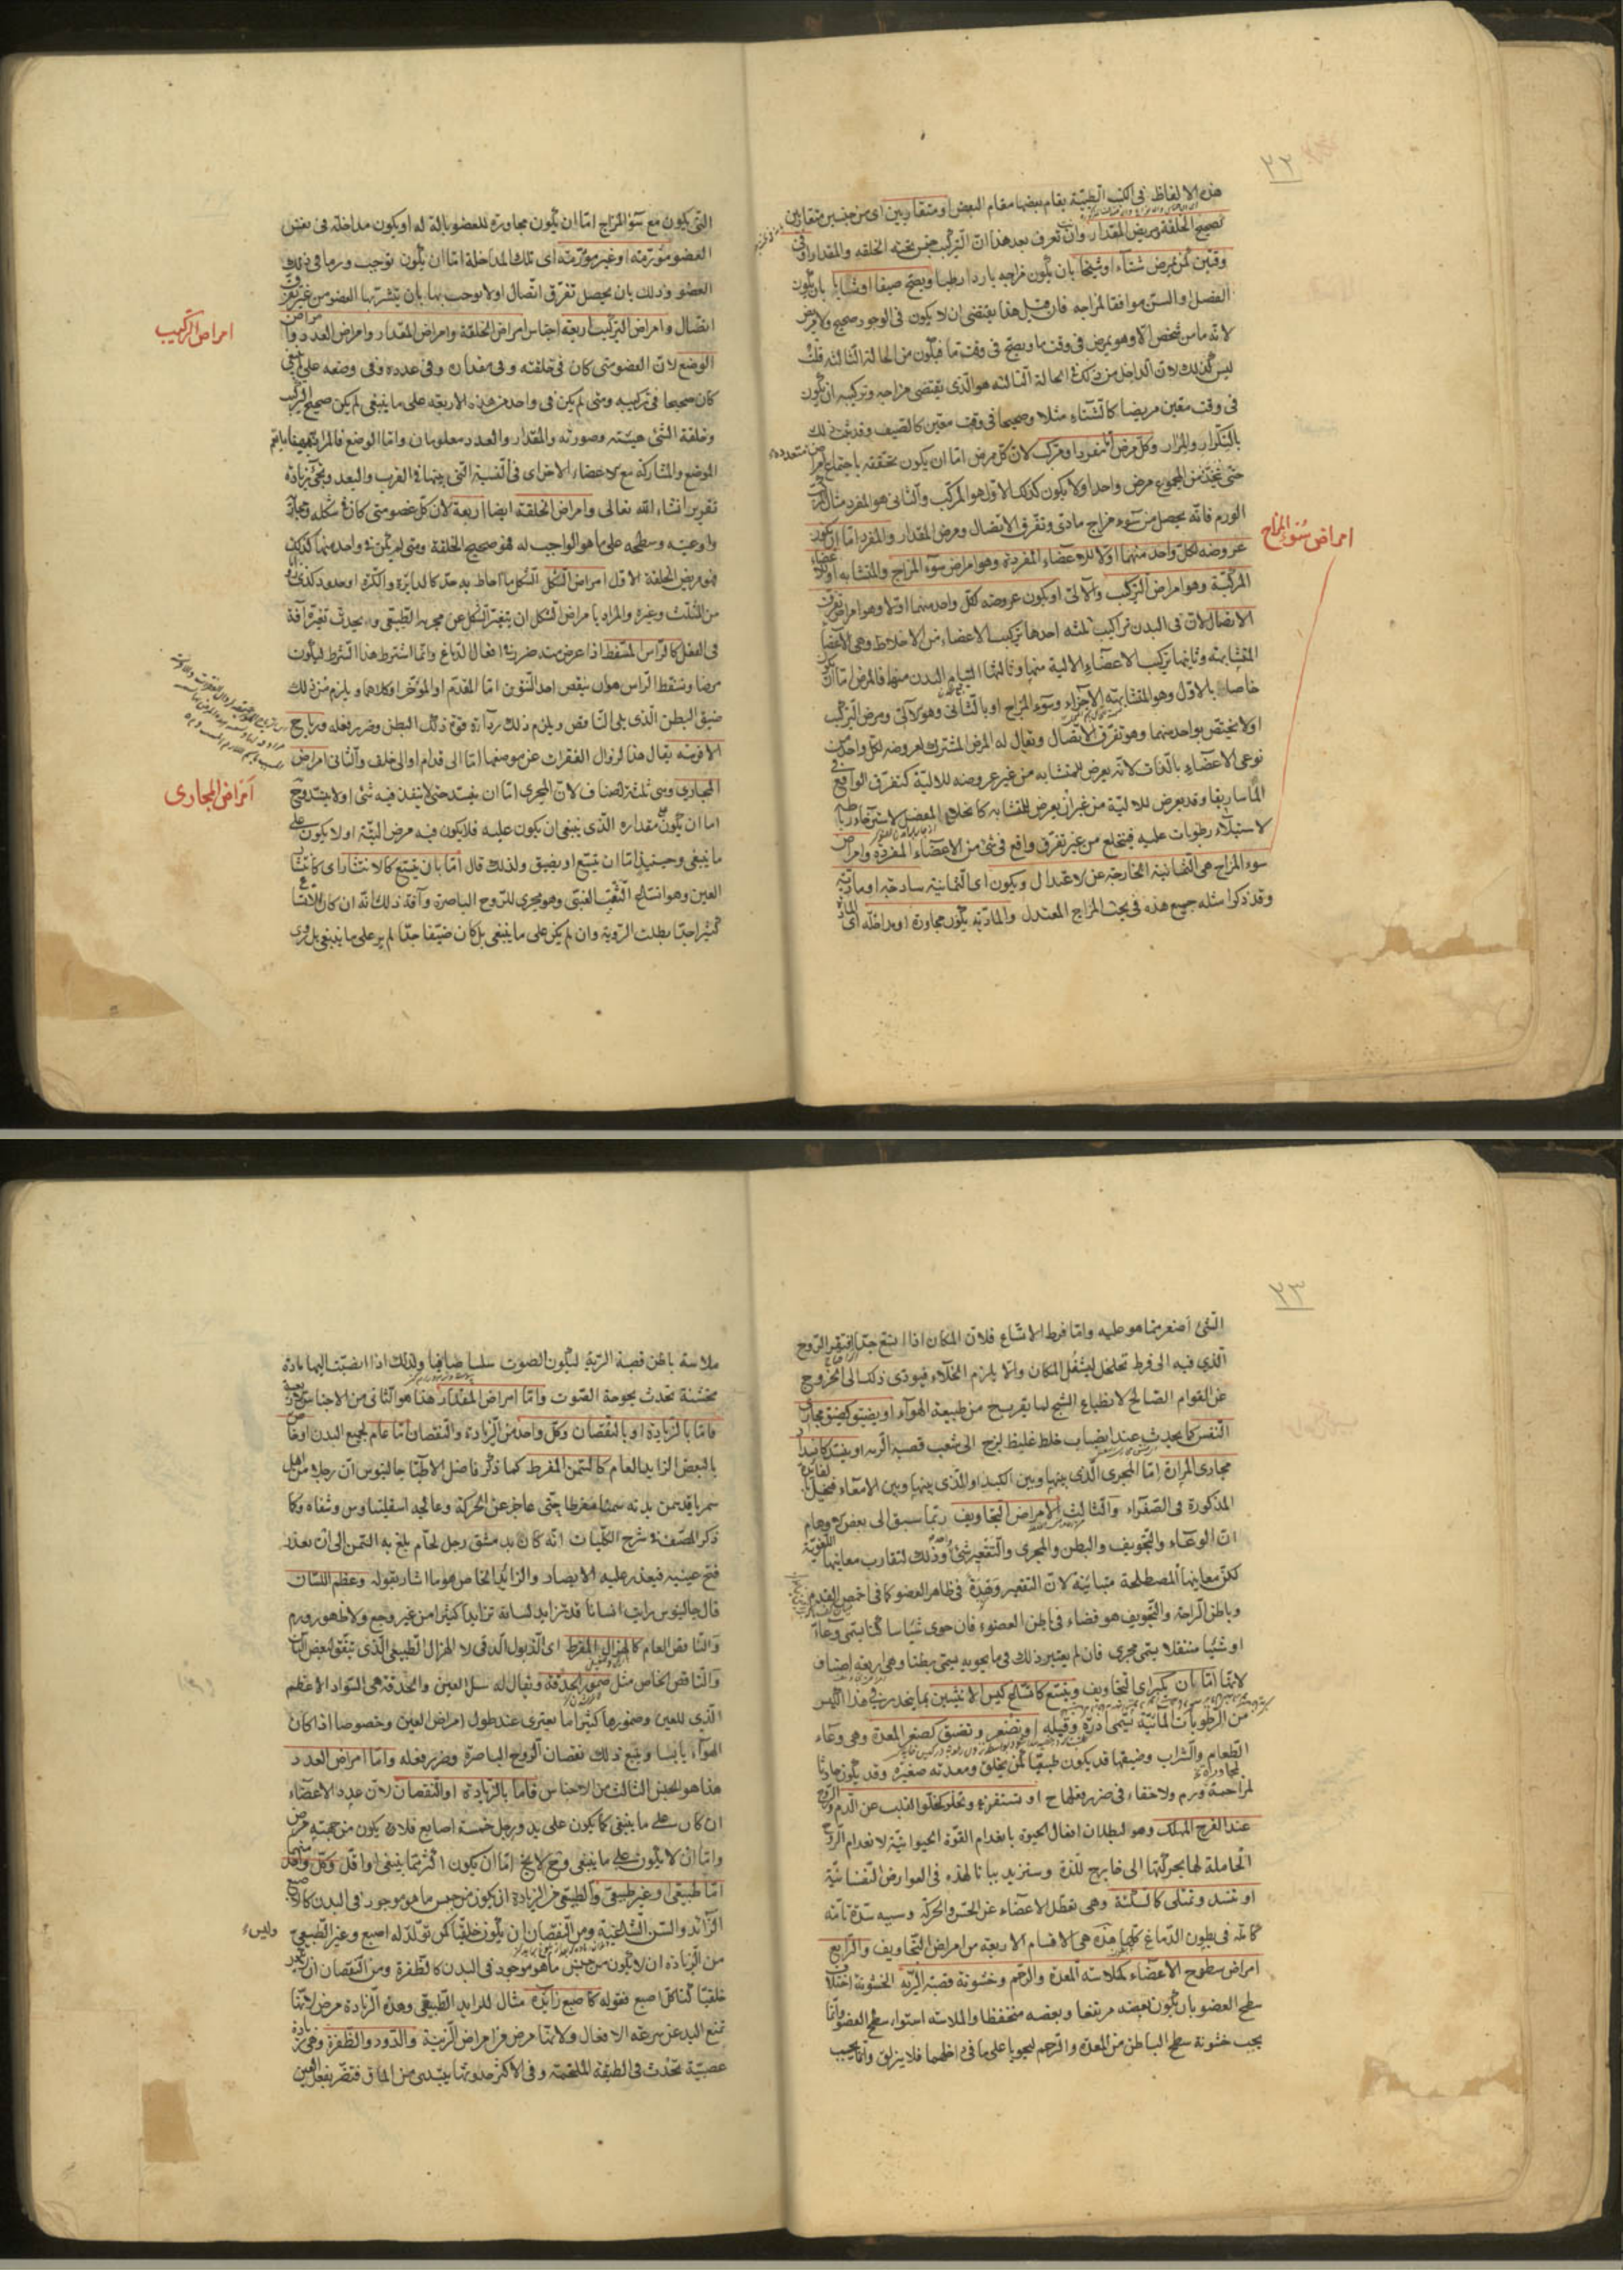 ٢٢
هذه الالفاظ فى الكتب الطبّية يقام بعضها مقام البعض او متقاربين اى من جنسين متقاربين
كصحيح الخلقة ومريض المقدار وان تعرف بعد هذا انّ التركيب جنس تحته الخلقه والمقدار او فى
وقتين كمن يمرض شتاء او شيخا بان يكون مزاجه باردا رطبا ويصحّ صيفا او شابا بان يكون
الفصل او السنّ موافقا لمزاجه فان قيل هذا يقتضى ان لا يكون فى الوجود صحيح ولا مريض
لانه ما من شخص الا وهو يمرض فى وقت ما ويصحّ فى وقت ما فيكون من الحالة الثالثة قلت
ليس كذلك لان الداخل من تلك الحالة الثالثه هو الّذى يقتضى مزاجه وتركيبه ان يكون
فى وقت معيّن مريضا كالشّتاء مثلا وصحيحا فى وقت معيّن كالصيف وقد ثبت ذلك
بالتكرار والمرار وكل مرض امّا مفرد او مركّب لان كلّ مرض امّا ان يكون تحققه باجتماع امراض متعدده
حتّى يتّحد من المجموع مرض واحد او لا يكون كذلك الاوّل هو المركّب والثانى هو المفرد مثال المركب
الورم فانّه يحصل من سوء مزاج مادى وتفرّق الاتصال ومرض المقدار والمفرد امّا ان يكون
عروضه لكلّ واحد منهما اولا للاعضاء المفردة وهو امراض سوء المزاج والمتشابه او للاعضاء
المركّبة وهو امراض التركيب والآلىّ او يكون عروضه لكلّ واحد منهما اولا وهو امراض تفرق
الاتصال لان فى البدن تراكيب ثلثه احدها تركيب الاعضاء من الاخلاط وهى الاعضا
المتشابهه وثانيها تركيب الاعضاء الالية منها وثالثها التيام البدن منها فالمرض امّا ان يكون
خاصا بالاوّل وهو المتشابه الاجزاء وسوء المزاج او بالثانى وهو الآلىّ ومرض التركيب
اولا يختص بواحد منهما وهو تفرّق الاتصال ويقال له المرض المشترك لعروضه لكل واحد من
نوعى الاعضاء بالذات لانه يعرض للمتشابه من غير عروضه للالية كتفرّق الواقع فى
الماساريقا وقد يعرض للاليّة من غير ان يعرض للمتشابه كانخلاع المفصل لاسترخاء رباطه
لاستيلاء رطوبات عليه فينخلع من غير تفرّق واقع فى شئ من الاعضاء المفردة وامراض
سوء المزاج هى الثمانية الخارجة عن الاعتدال ويكون اى الثمانية ساذجة او ماديّة
وقد ذكرا مثله جميع هذه فى بحث المزاج المعتدل والماديّة يكون مجاورة او مداخله اى المادّة
امراض سوء المزاج
التى يكون مع سؤ المزاج امّا ان يكون مجاورة للعضو بالة له او يكون مداخلة فى نفس
العضو مؤرّمة او غير مؤرّمة اى تلك المداخلة امّا ان يكون توجب ورما فى ذلك
العضو وذلك بان يحصل تفرّق اتصال او لا يوجب بها بان يتشرّبها العضو من غير تفرّق
اتصال وامراض التركيب اربعة اجناس امراض الخلقة وامراض المقدار وامراض العدد وامراض
الوضع لان العضو متى كان فى خلقته وفى مقداره وفى عدده وفى وضعه على ما ينبغى
كان صحيحا فى تركيبه ومتى لم يكن فى واحد من هذه الاربعه على ما ينبغى لم يكن صحيح التركيب
وخلقة الشئ هيئته وصورته والمقدار والعدد معلومان وامّا الوضع فالمراد
الموضع والمشاركة مع الاعضاء الاخرى اى النسبة الّتى بينها فى القرب والبعد ويجئ زيادة
تقرير انشاء الله تعالى وامراض الخلقة ايضا اربعة لان كلّ عضو متى كان فى شكله ومجاريه
واوعيته وسطحه على ما هو الواجب له فهو صحيح الخلقة ومتى لم يكن فى واحد منها كذلك
فهو مريض الخلقة الاوّل امراض الشكل الشكل ما احاط به حدّ كالدايرة والكرة او حدود كذى
من المثلّث وغيره والمراد بامراض الشكل ان يتغيّر الشكل عن مجراه الطّبيعى و يحدث تغيّره آفة
فى الفعل كالرّاس المسقّط اذا عرض منه ضرر فى افعال الدماغ وانّما اشترط هذا الشرط ليكون
مرضا وتسفط الرّاس هو ان ينقص احد النتوين امّا المقدّم او المؤخّر او كلاهما ويلزم من ذلك
ضيق البطن الّذى يلى النّاقص ويلزم ذلك ردآءة قوّة ذلك البطن وضرر فعله ورياح
الافرسه يقال هذا لزوال الفقرات عن موضعها امّا الى قدام او الى خلف والثانى امراض
المجارى وهى ثلثة اصناف لان المجرى امّا ان ينسدّ حتى لا ينفذ فيه شئ او لا ينسدّ وح
امّا ان يكون مقداره الّذى ينبغى ان يكون عليه فلا يكون فيه مرض البتّه او لا يكون على
ما ينبغى وحينئذ امّا ان يتسع او يضيق ولذلك قال امّا بان يتسع كالانتشار اى كانتشار
العين وهو اتساع الثقب العنبىّ وهو مجرى للرّوح الباصرة وآفة ذلك انّه ان كان الاتساع
كثيرا جدّا بطلت الرّوية وان لم يكن على ما ينبغى بل كان ضيّقا جدّا لم ير على ما ينبغى بل يرى
امراض التركيب
امراض المجارى
٢٣
الشّئ اصغر ممّا هو عليه وامّا فرط الاتساع فلان المكان اذا اتسع جدّا افتقر الرّوح
الّذى فيه الى فرط تخلخل ليشغل المكان والّا يلزم الخلاء فيؤدى ذلك الى الخروج
عن القوام الصّالح لانطباع الشبح لما يقرب من طبيعة الهوآء او يضيق كضيق مجارى
النّفس كما يحدث عند انصباب خلط غليظ لزج الى شعب قصبة الرّيه او ينسدّ كانسداد
مجارى المرارة امّا المجرى الّذى بينها وبين الكبد او الّذى بينها وبين الامعاء فيختل
المذكورة فى الصّفراء والثالث امراض التجاويف ربّما سبق الى بعض الاوهام
انّ الوعاء والتجويف والبطن والمجرى والتقعير شئ واحد وذلك لتقارب معانيها اللّغويّة
لكن معانيها المصطلحة متباينة لان التقعير وَهْدة فى ظاهر العضو كما فى اخمص القدم
وباطن الرّاحة والتّجويف هو فضاء فى باطن العضو فان حوى شيئا ساكنا يسمّى وعآء
او شيئا متنقّلا يسمّى مجرى فان لم يعتبر ذلك فيما يحويه يسمّى بطنا وهى اربعة اصناف
لانها امّا بان يكبر اى التجاويف ويتسع كاتساع كيس الانثيين بما ينحدر فى هذا الكيس
من الرّطوبات المائيّة يسمّى ادرة وقيلة او تصغر وتضيق كصغر المعدة وهى وعاء
الطّعام والشّراب وضيقها قد يكون طبيعيّا كمن يخلق ومعدته صغيرة وقد يكون حادثا
لمزاحمة ورم ولا خفاء فى ضرر فعلها ح او تستفرغ وتخلو كخلوّ القلب عن الدّم والرّوح
عند الفرح المهلك وهو لبطلان افعال الحيوة بانعدام القوّة الحيوانيّة لانعدام الرّوح
الحاملة لها بحركتها الى خارج للذّة وسنزيد بيانا لهذه فى العوارض النّفسانيّة
او تنسد وتمتلى كالسكتة وهى تعطّل الاعضاء عن الحسّ والحركة وسببه سدّة تامّة
كاملة فى بطون الدّماغ كلّها هذه هى الاقسام الاربعة من امراض التّجاويف والرّابع
امراض سطوح الاعضاء كملاسة المعدة والرّحم وخشونة قصبة الرّيه الخشونة اختلاف
سطح العضو بان يكون بعضه مرتفعا وبعضه منخفضا والملاسة استواء سطح العضو وانّما
يجب خشونة سطح الباطن من المعدة والرّحم ليحويا على ما فى داخلهما فلا يزلق وانّما يجب
ملاسة باطن قصبة الرّية ليكون الصوت سلسا صافيا ولذلك اذا انصبّت اليها مادة
مخشنة تحدث بحوحة الصّوت وامّا امراض المقدار هذا هو الثانى من الاجناس الاربعة
فامّا بالزّيادة او بالنّقصان وكل واحد من الزّيادة والنّقصان امّا عام لجميع البدن او خاص
بالبعض الزّايد العام كالسّمن المفرط كما ذكر فاضل الاطبّا جالينوس ان رجلا من اهل
سمر باقد سمن بدنه سمنا مفرطا حتّى عاجز عن الحركة وعالجه اسقلينا وس وشفاه وكما
ذكر المصنّف فى شرح الكلّيات انّه كان بدمشق رجل لحّام بلغ به السّمن الى ان تعذّر
فتح عينيه فيعذر عليه الابصار والزائد الخاص هو ما اشار بقوله وعظم اللّسان
قال جالينوس رايت انسانا قد تزايد لسانه تزايدا كثيرا من غير وجع ولا ظهور ورم
والنّاقص العام كالهزال المفرط اى الذبول الدّق لا الهزال الطّبيعى الّذى يتفق لبعض النّاس
والنّاقص الخاص مثل ضمور الحدقة ويقال له سلّ العين والحدقة هى السّواد الاعظم
الّذى للعين وضمورها كثيرا ما يعترى عند طول امراض العين وخصوصا اذا كان
الهوآء يابسا ويتبع ذلك نقصان الروح الباصرة وضرر فعله وامّا امراض العدد
هذا هو الجنس الثالث من الاجناس فامّا بالزّيادة او النّقصان لان عدد الاعضاء
ان كان على ما ينبغى كما يكون على يد ورجل خمسة اصابع فلا يكون من جهته مرض
وامّا ان لا يكون على ما ينبغى وح لا يخ امّا ان يكون اكثر ممّا ينبغى او اقل وكل واحد منهما
امّا طبيعى او غير طبيعى والطّبيعى من الزّيادة ان يكون من جنس ما هو موجود فى البدن كالاصبع
الزّائد والسّن الشّاغية ومن النّقصان ان يكون خلقيّا كمن تولّد له اصبع وغير الطّبيعى
من الزّيادة ان لا يكون من جنس ما هو موجود فى البدن كالظّفرة ومن النّقصان ان لا يكون
خلقيّا كتاكل اصبع فقوله كاصبع زايدة مثال للزايد الطّبيعى وهذه الزّيادة مرض لانّها
تمنع اليد عن سرعة الافعال ولانّها مرض من امراض الزّينة والدّود والظّفرة وهى زيادة
عصبيّة تحدث فى الطبقة الملتحمة وفى الاكثر حدوثها يبتدى من الماق فتضرّ بفعل العين
وليس له